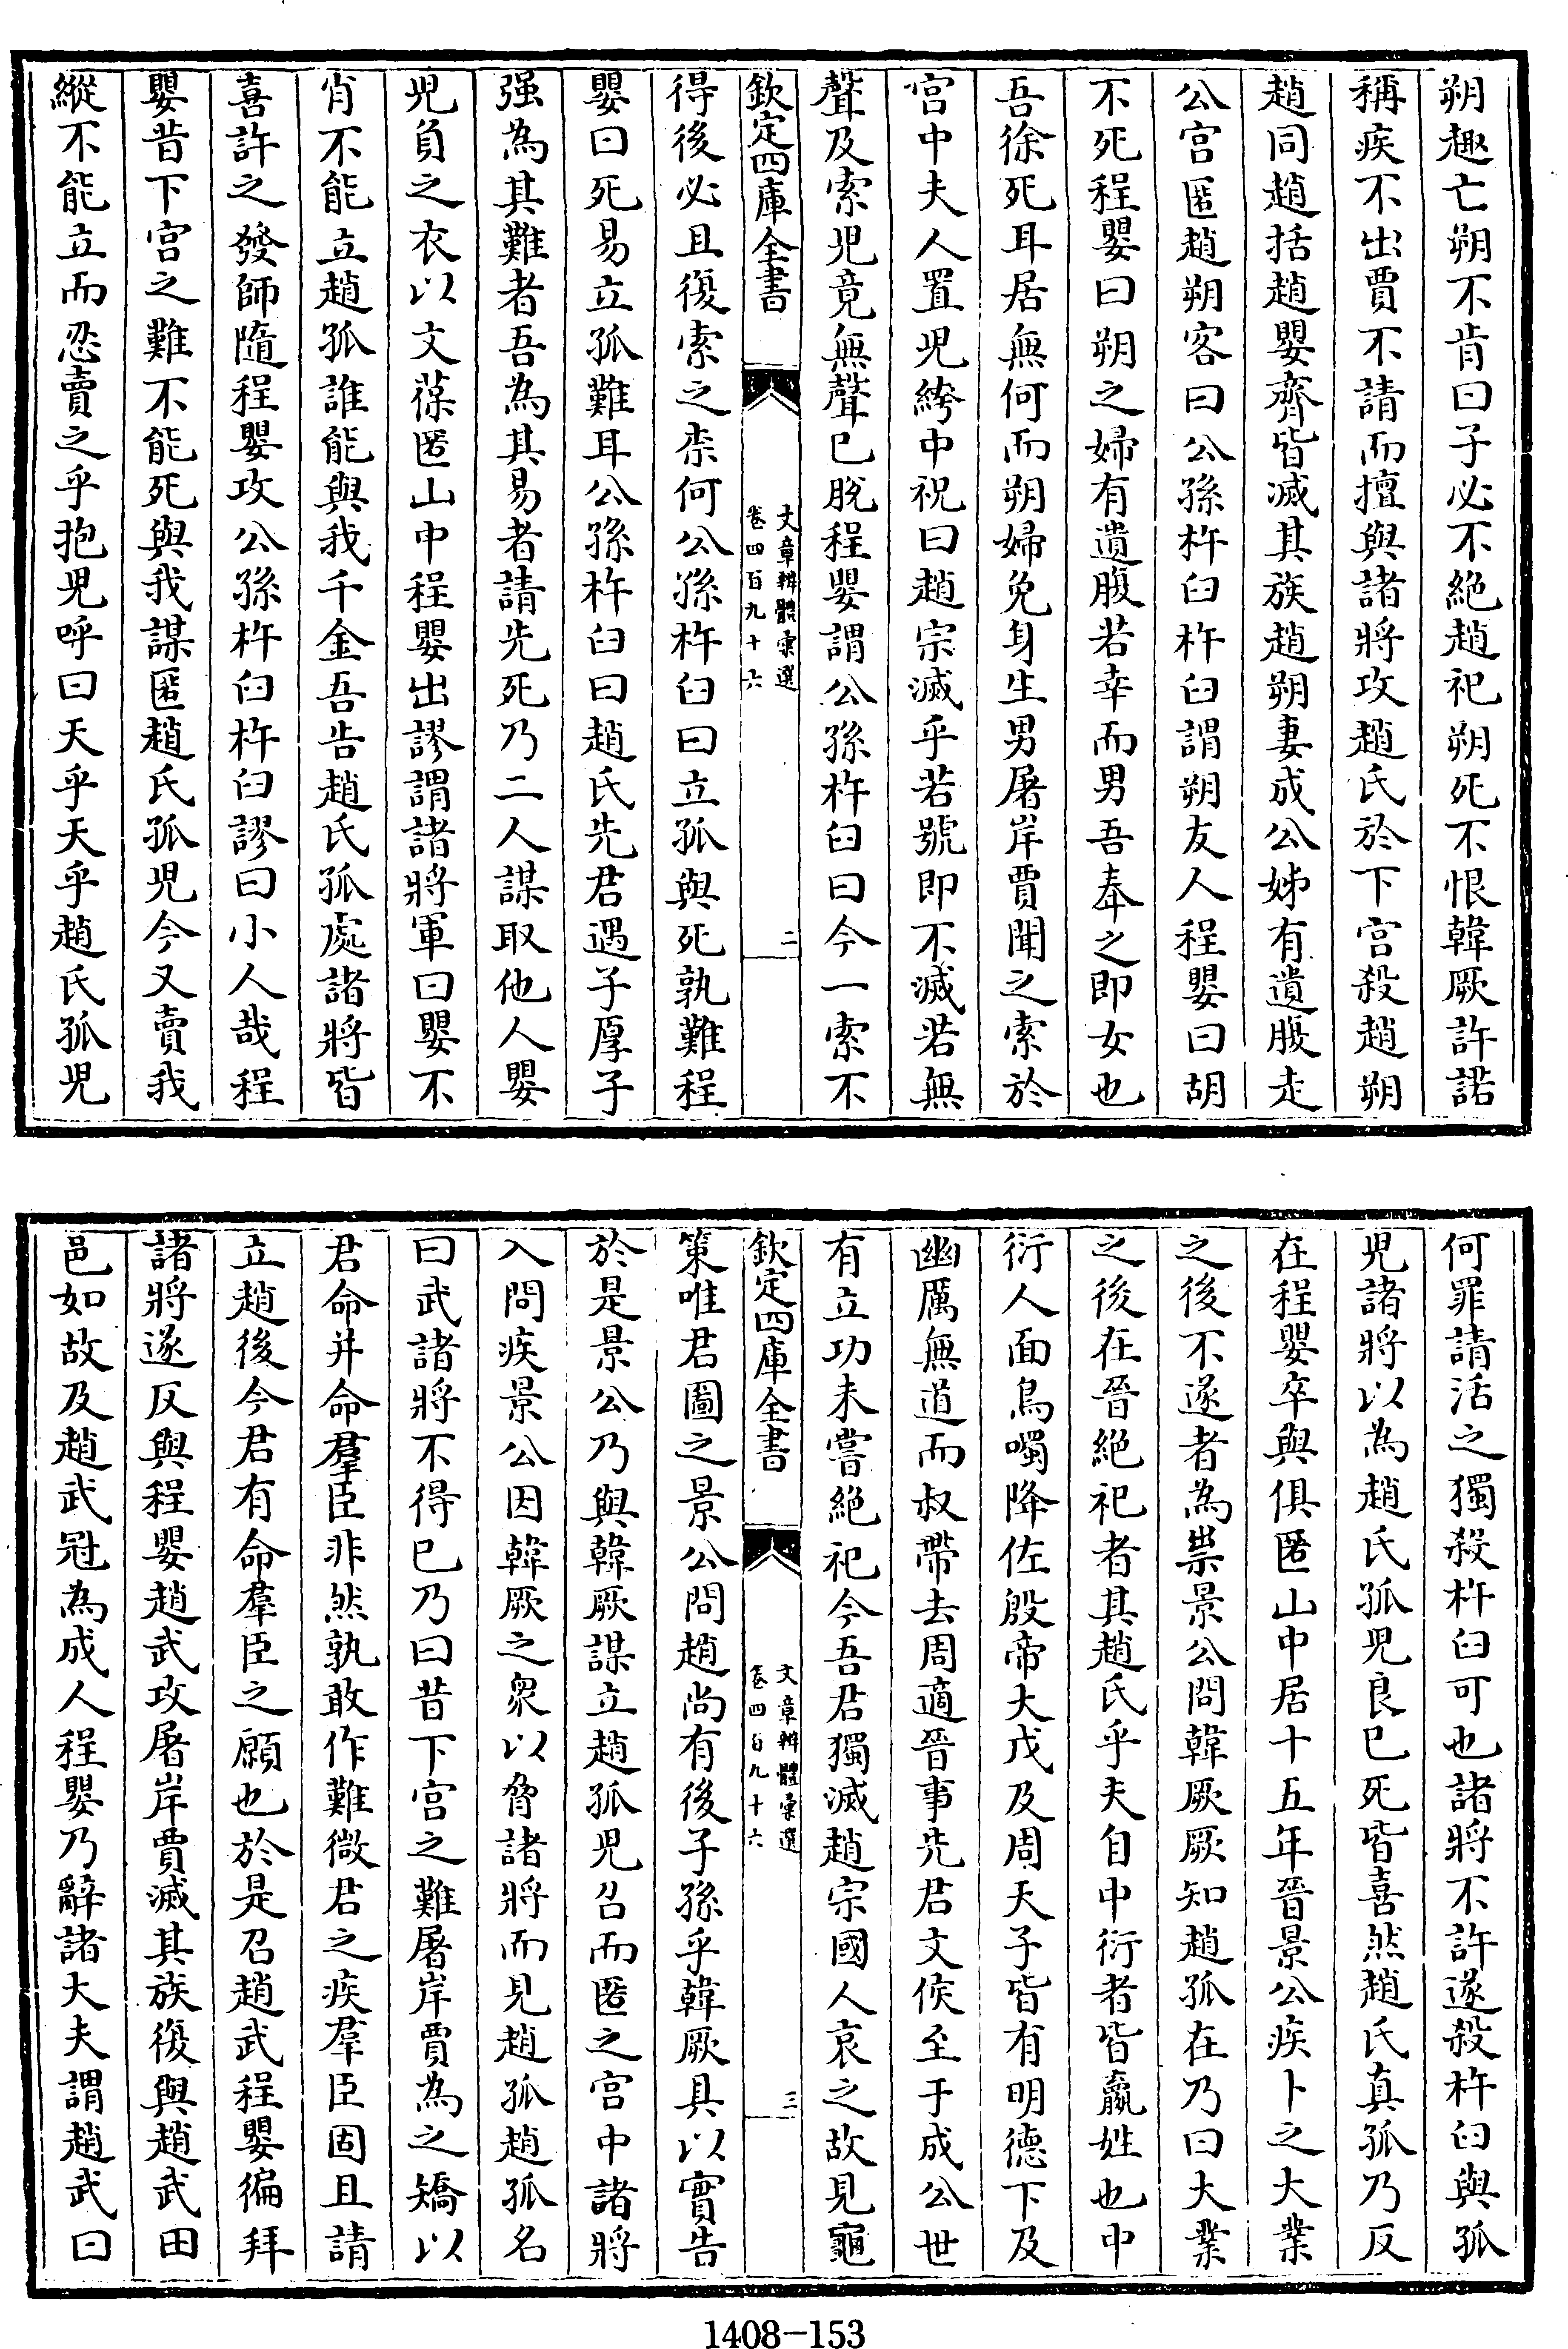 朔趣亡朔不肯曰子必不絶趙祀朔死不恨韓厥許諾
稱疾不出賈不請而擅與諸將攻趙氏於下宫殺趙朔
趙同趙括趙嬰齊皆滅其族趙朔妻成公姊有遺腹走
公宫匿趙朔客曰公孫杵臼杵臼謂朔友人程嬰曰胡
不死程嬰曰朔之婦有遺腹若幸而男吾奉之即女也
吾徐死耳居無何而朔婦免身生男屠岸賈聞之索於
宫中夫人置兒絝中祝曰趙宗滅乎若號即不滅若無
聲及索兒竟無聲已脫程嬰謂公孫杵臼曰今一索不
欽定四庫全書
文章辨體彙選
卷四百九十六
二
得後必且復索之柰何公孫杵臼曰立孤與死孰難程
嬰曰死易立孤難耳公孫杵臼曰趙氏先君遇子厚子
强為其難者吾為其易者請先死乃二人謀取他人嬰
兒負之衣以文葆匿山中程嬰出謬謂諸將軍曰嬰不
肖不能立趙孤誰能與我千金吾告趙氏孤處諸將皆
喜許之發師隨程嬰攻公孫杵臼杵臼謬曰小人哉程
嬰昔下宫之難不能死與我謀匿趙氏孤兒今又賣我
縱不能立而忍賣之乎抱兒呼曰天乎天乎趙氏孤兒
何罪請活之獨殺杵臼可也諸將不許遂殺杵臼與孤
兒諸將以為趙氏孤兒良已死皆喜然趙氏真孤乃反
在程嬰卒與俱匿山中居十五年晉景公疾卜之大業
之後不遂者為祟景公問韓厥厥知趙孤在乃曰大業
之後在晉絶祀者其趙氏乎夫自中衍者皆嬴姓也中
衍人面鳥噣降佐殷帝大戊及周天子皆有明德下及
幽厲無道而叔帶去周適晉事先君文侯至于成公世
有立功未嘗絶祀今吾君獨滅趙宗國人哀之故見龜
欽定四庫全書
文章辨體彙選
卷四百九十六
三
策唯君圖之景公問趙尚有後子孫乎韓厥具以實告
於是景公乃與韓厥謀立趙孤兒召而匿之宫中諸將
入問疾景公因韓厥之衆以脅諸將而見趙孤趙孤名
曰武諸將不得已乃曰昔下宫之難屠岸賈為之矯以
君命并命羣臣非然孰敢作難微君之疾羣臣固且請
立趙後今君有命羣臣之願也於是召趙武程嬰徧拜
諸將遂反與程嬰趙武攻屠岸賈滅其族復與趙武田
邑如故及趙武冠為成人程嬰乃辭諸大夫謂趙武曰
1408-153